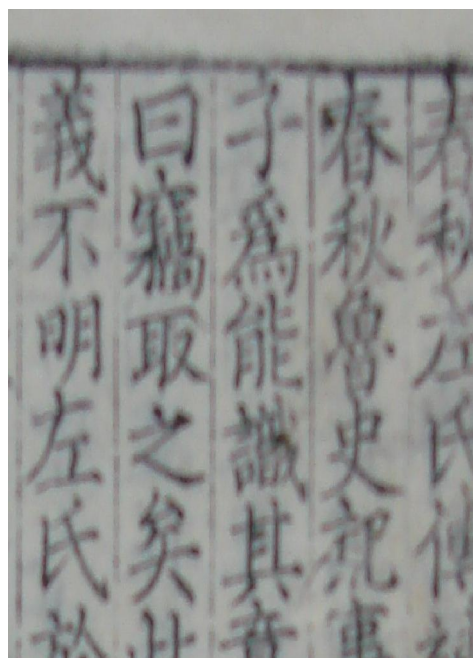 春秋左氏傳
春秋魯史記事
子爲能識其意
曰竊取之矣此
義不明左氏於